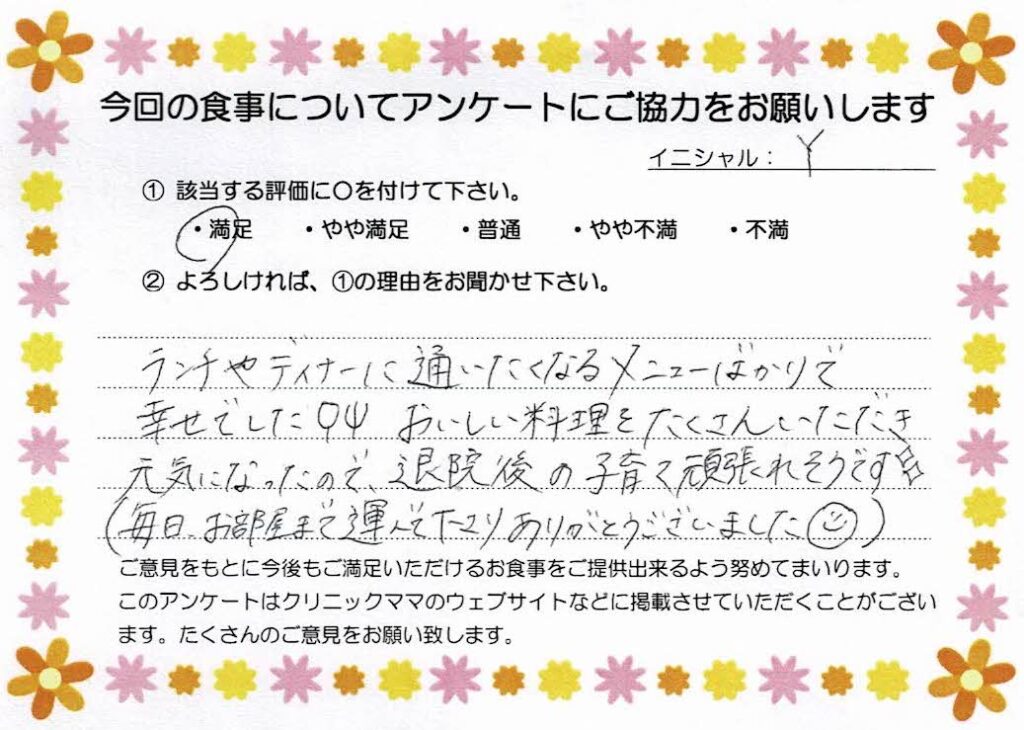 今回の食事についてアンケートにご協力をお願いします
イニシャル： Y
① 該当する評価に〇を付けて下さい。
・満足 ・やや満足 ・普通 ・やや不満 ・不満
② よろしければ、①の理由をお聞かせ下さい。
ランチやディナーに通いたくなるメニューばかりで
幸せでした おいしい料理をたくさんいただき
元気になったので、退院後の子育て頑張れそうです
(毎日、お部屋まで運んで下さりありがとうございました)
ご意見をもとに今後もご満足いただけるお食事をご提供出来るよう努めてまいります。
このアンケートはクリニックママのウェブサイトなどに掲載させていただくことがござい
ます。たくさんのご意見をお願い致します。